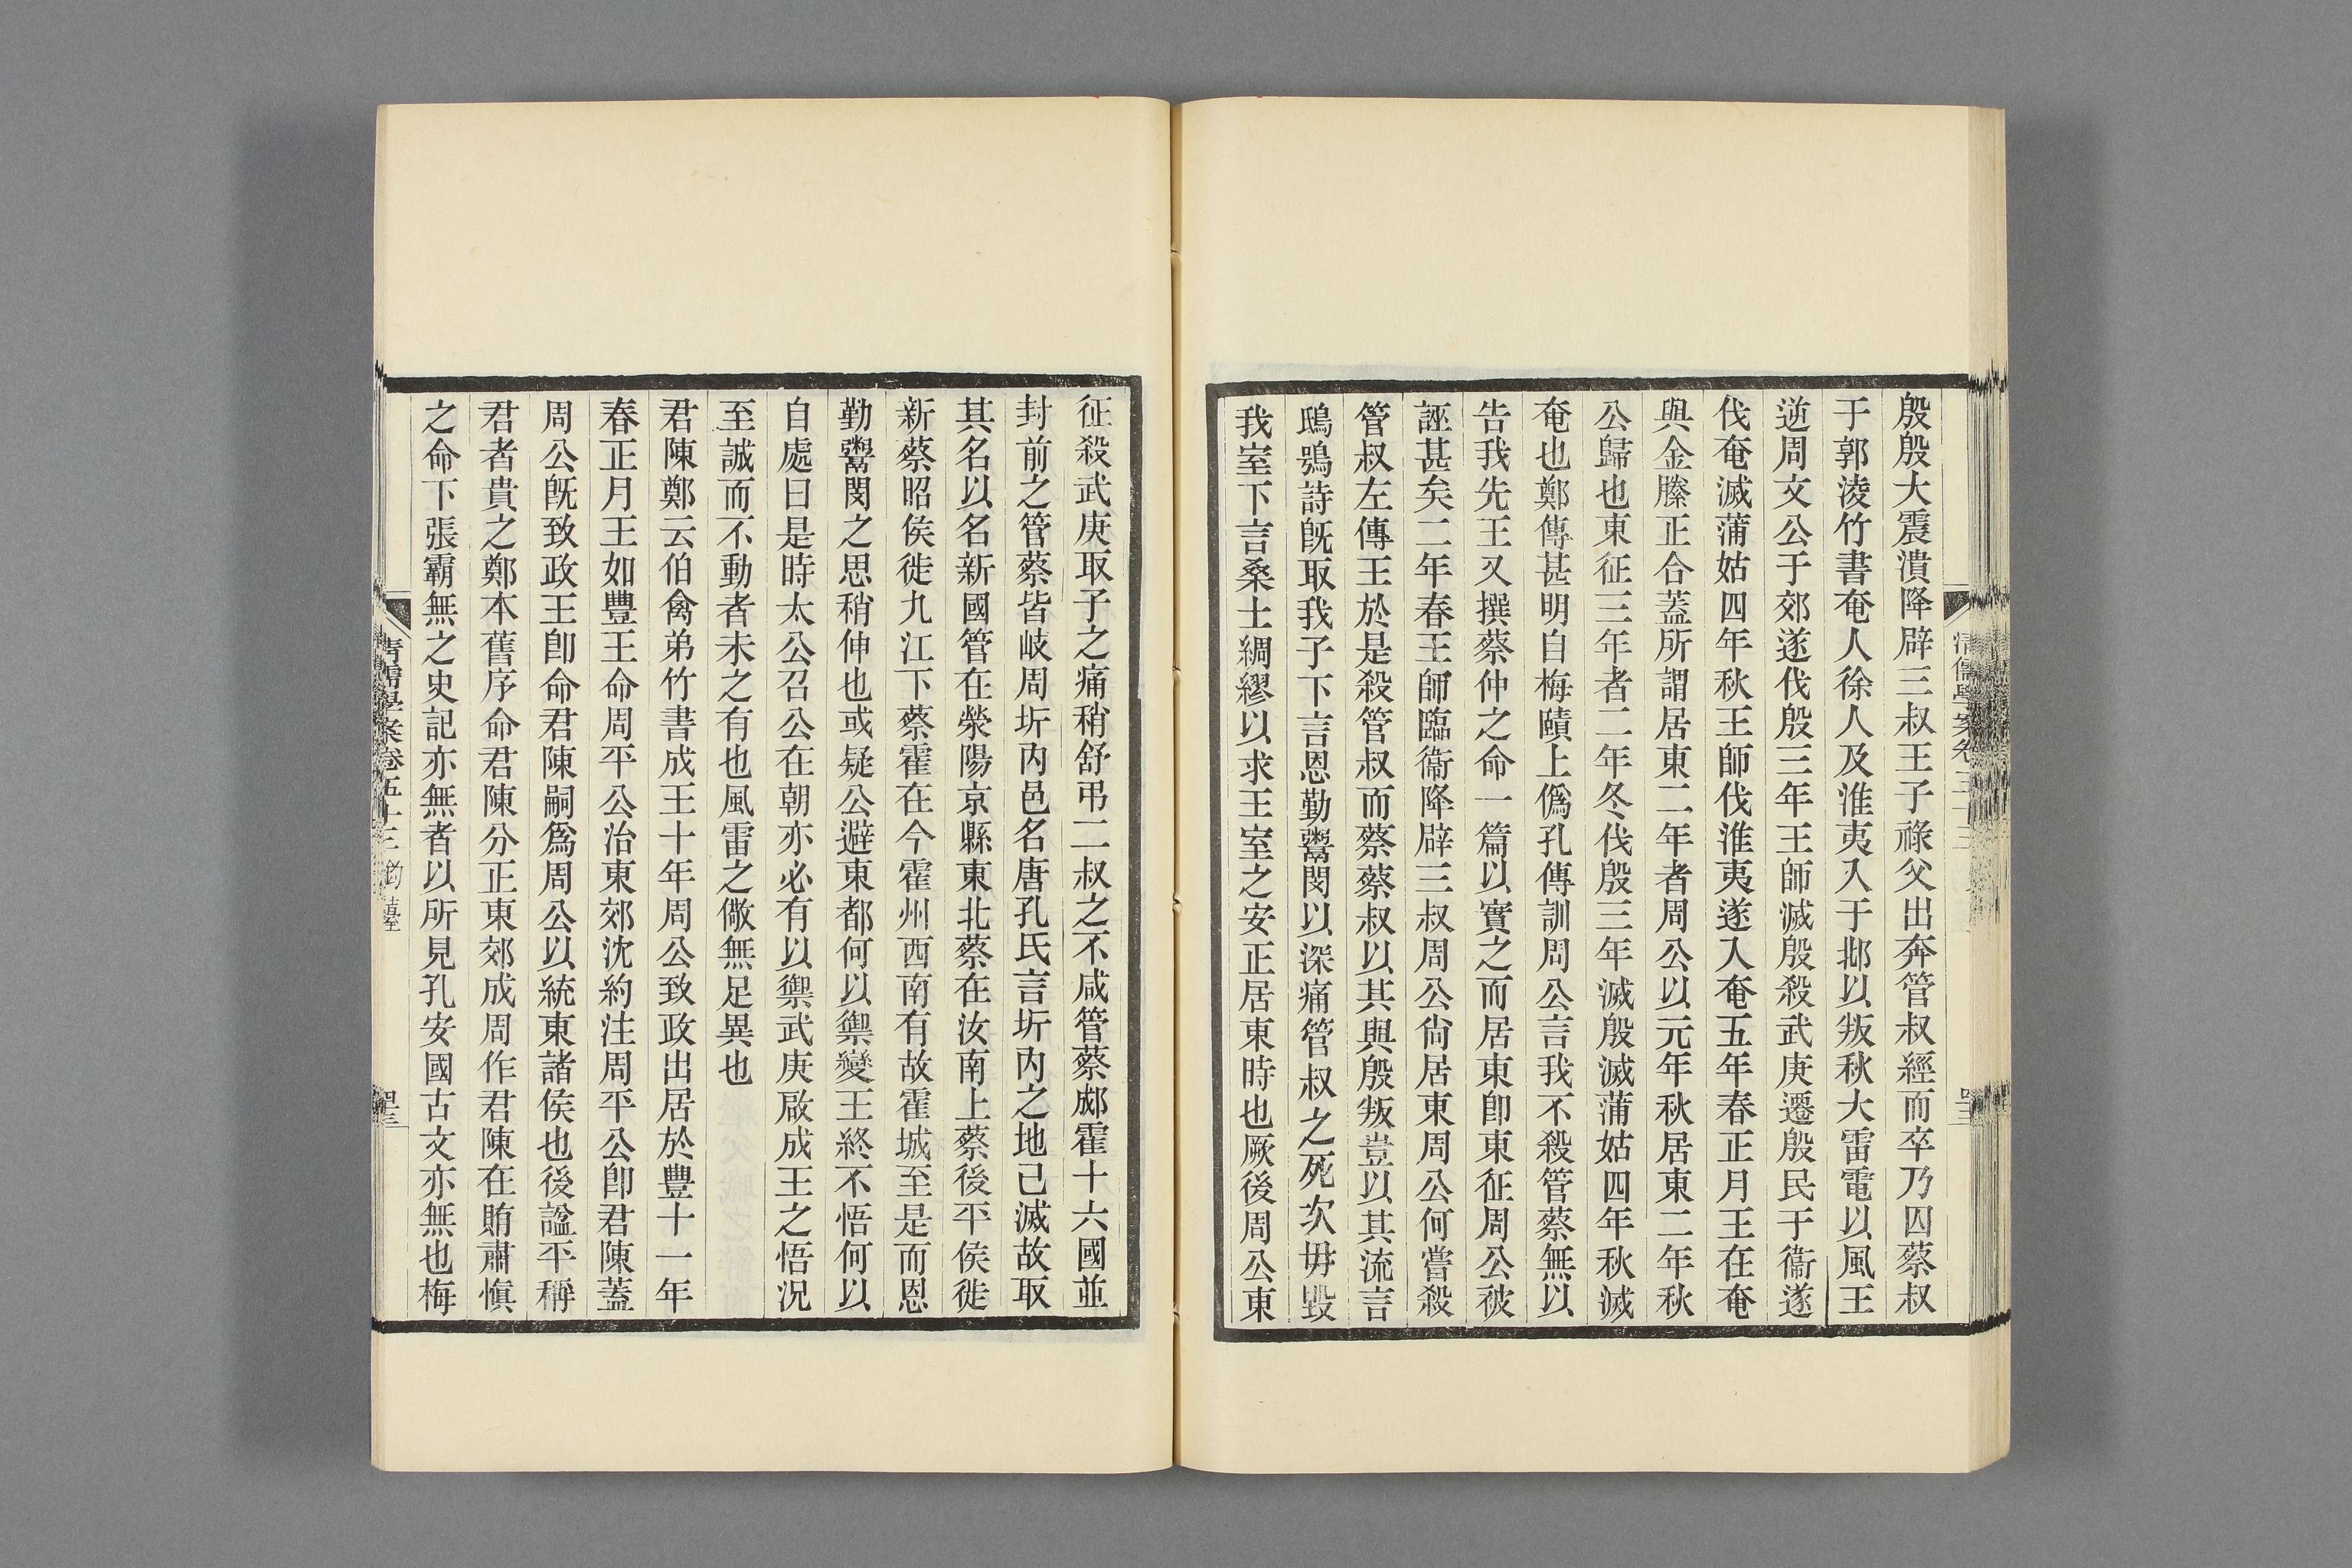 殷殷大震潰降辟三叔王子祿父出奔管叔經而卒乃囚蔡叔
于郭淩竹書奄人徐人及淮夷入于邶以叛秋大雷電以風王
逆周文公于郊遂伐殷三年王師滅殷殺武庚遷殷民于衞遂
伐奄滅蒲姑四年秋王師伐淮夷遂入奄五年春正月王在奄
與金縢正合蓋所謂居東二年者周公以元年秋居東二年秋
公歸也東征三年者二年冬伐殷三年滅殷滅蒲姑四年秋滅
奄也鄭傳甚明自梅賾上僞孔傳訓周公言我不殺管蔡無以
告我先王又撰蔡仲之命一篇以實之而居東卽東征周公被
誣甚矣二年春王師臨衞降辟三叔周公尙居東周公何嘗殺
管叔左傳王於是殺管叔而蔡蔡叔以其與殷叛豈以其流言
鴟鴞詩旣取我子下言恩勤鬻閔以深痛管叔之死次毋毀
我室下言桑土綢繆以求王室之安正居東時也厥後周公東
征殺武庚取子之痛稍舒弔二叔之不咸管蔡郕霍十六國並
封前之管蔡皆岐周圻內邑名唐孔氏言圻內之地已滅故取
其名以名新國管在滎陽京縣東北蔡在汝南上蔡後平侯徙
新蔡昭侯徙九江下蔡霍在今霍州西南有故霍城至是而恩
勤鬻閔之思稍伸也或疑公避東都何以禦變王終不悟何以
自處曰是時太公召公在朝亦必有以禦武庚啟成王之悟況
至誠而不動者未之有也風雷之儆無足異也
君陳鄭云伯禽弟竹書成王十年周公致政出居於豐十一年
春正月王如豐王命周平公治東郊沈約注周平公卽君陳蓋
周公旣致政王卽命君陳嗣爲周公以統東諸侯也後諡平稱
君者貴之鄭本舊序命君陳分正東郊成周作君陳在賄肅愼
之命下張霸無之史記亦無者以所見孔安國古文亦無也梅
清儒學案卷五十三